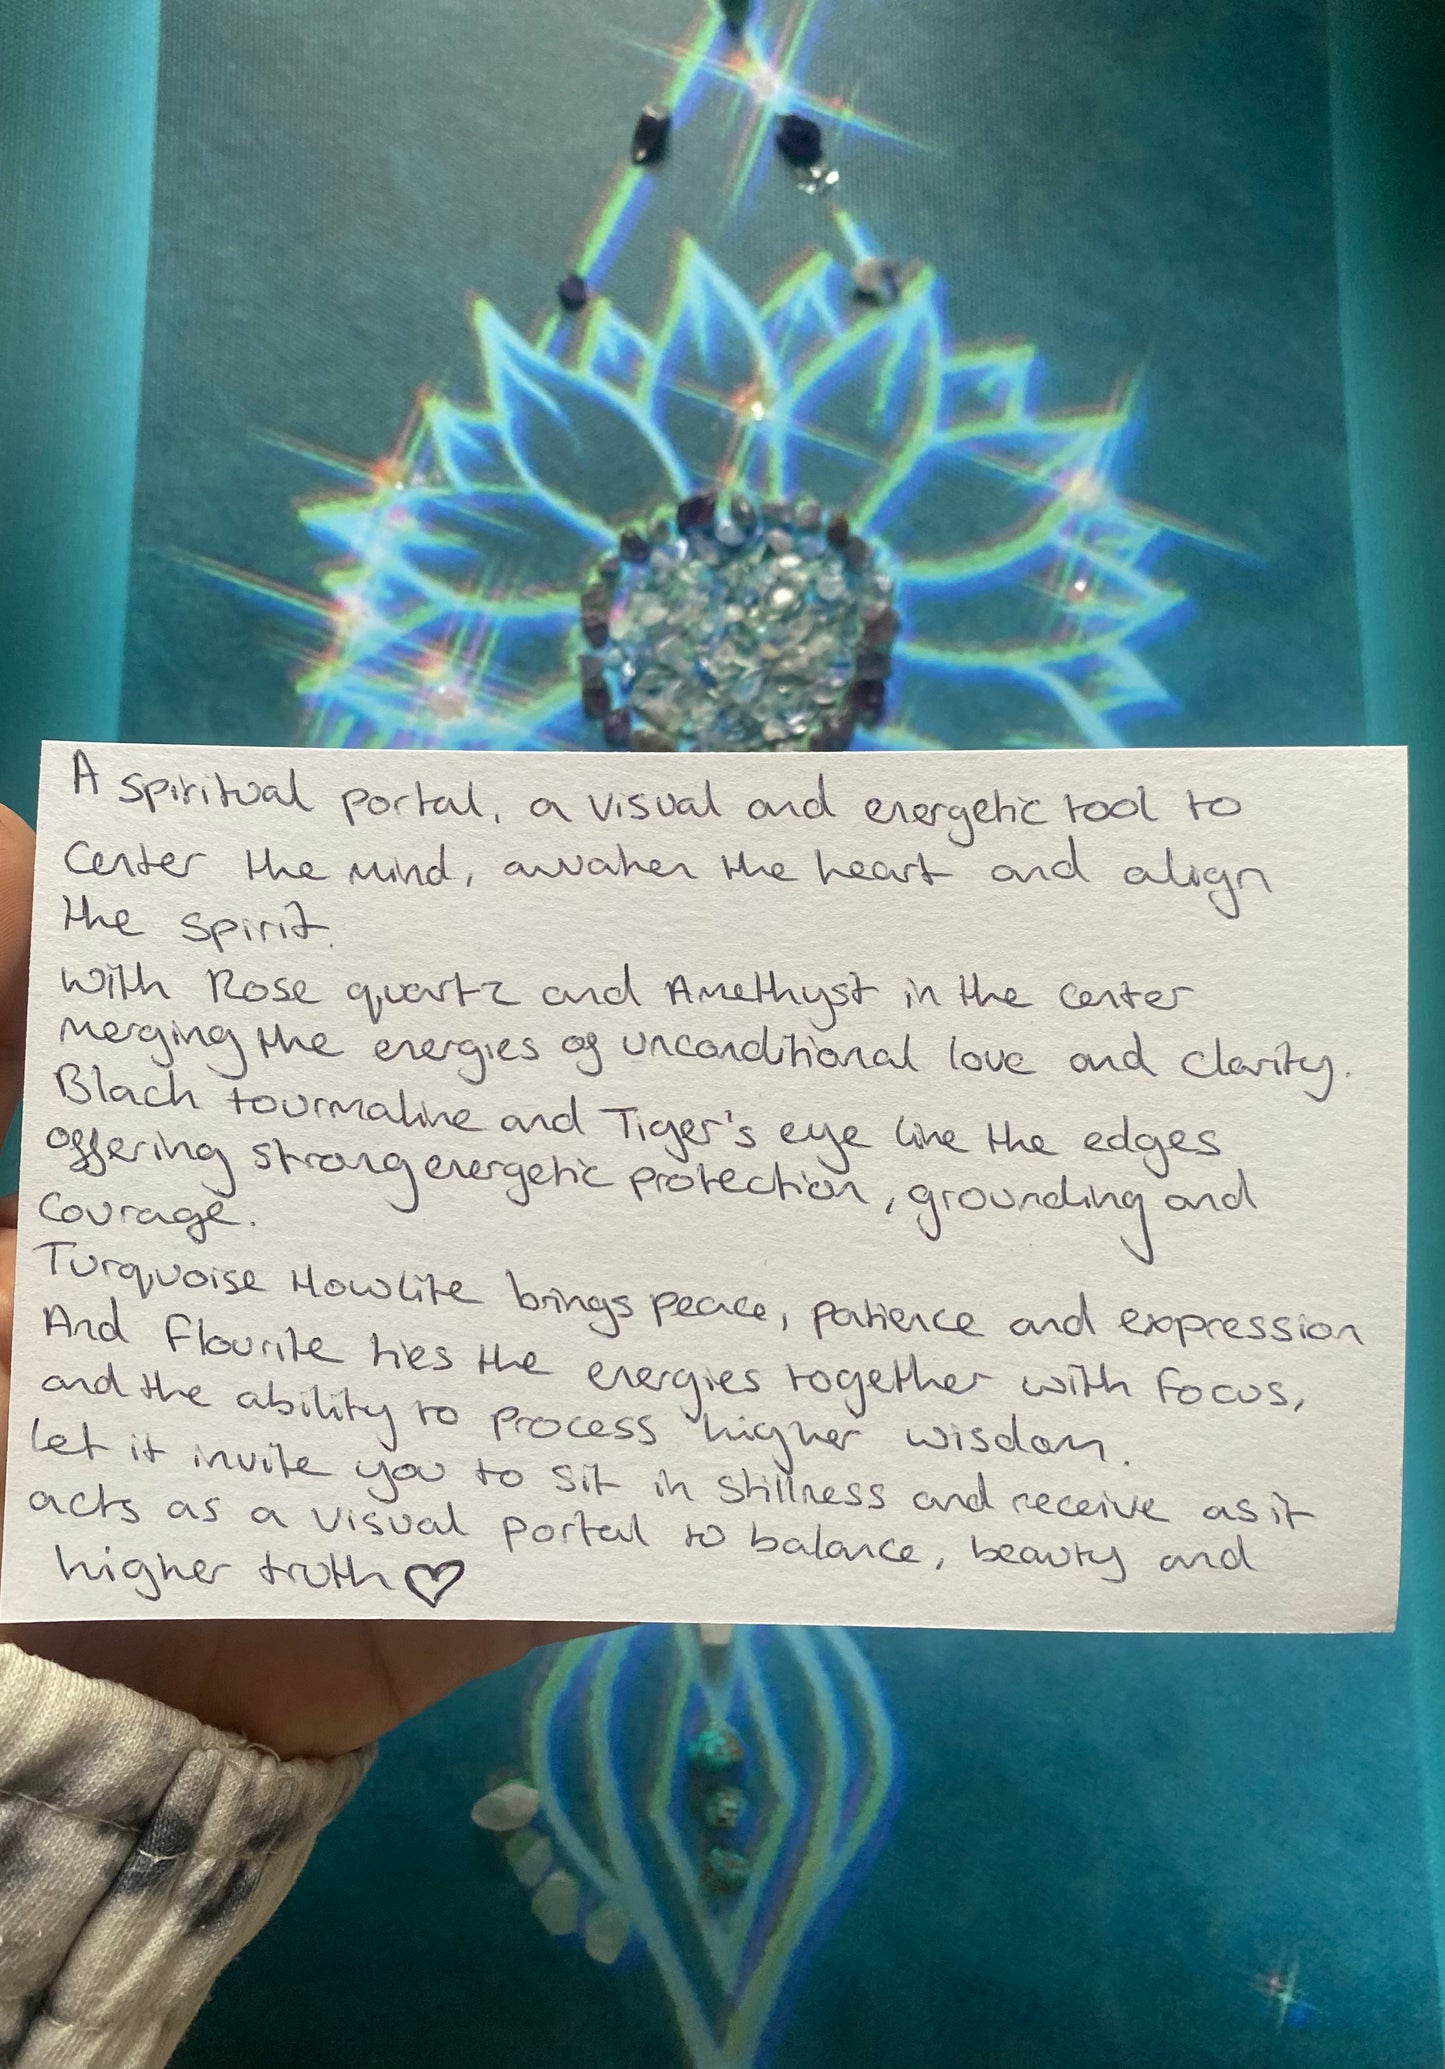 A spiritual portal, a visual and energetic tool to
center the mind, awaken the heart and align
the spirit.
With Rose quartz and Amethyst in the center
merging the energies of unconditional love and clarity.
Black tourmaline and Tiger's eye line the edges
offering strong energetic protection, grounding and
courage.
Turquoise Howlite brings peace, patience and expression
And Flourite ties the energies together with focus,
and the ability to process higher wisdom.
let it invite you to sit in stillness and receive as it
acts as a visual portal to balance, beauty and
higher truth ♡